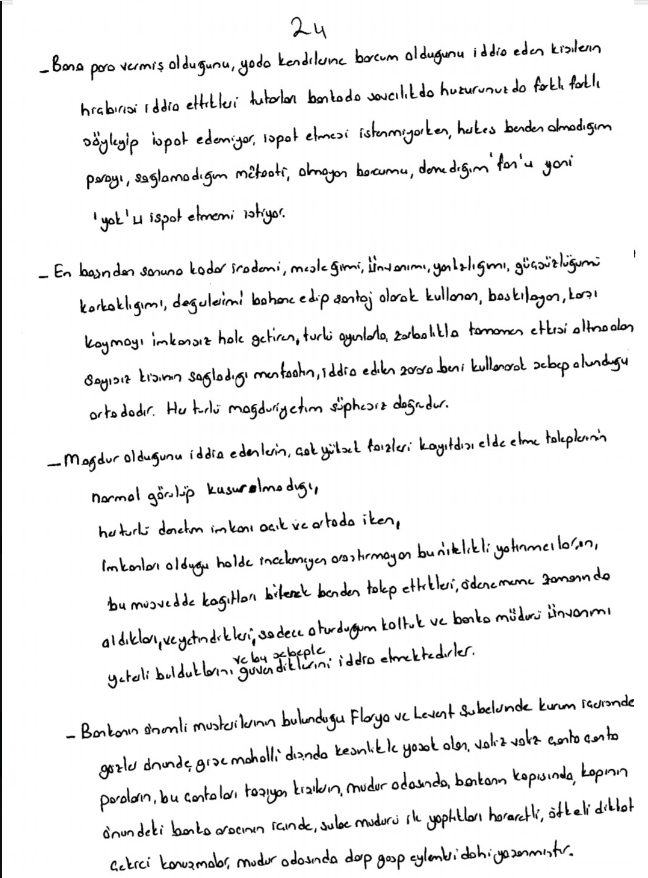 24
- Bana para vermiş olduğunu, yada kendilerine borcum olduğunu iddia eden kişilerin
hiçbirisi iddia ettikleri tutarları bankada savcılıkda huzurunuzda farklı farklı
söyleyip ispat edemiyor, ispat etmesi istenmiyorken, herkes benden almadığım
parayı, sağlamadığım menfaati, olmayan borcumu, denediğim 'fon'u yani
'yok'u ispat etmemi istiyor.
- En başından sonuna kadar irademi, mesleğimi, ünvanımı, yanlızlığımı, güçsüzlüğümü
korkaklığımı, değerlerimi bahane edip şantaj olarak kullanan, baskılayan, karşı
koymayı imkansız hale getiren, türlü oyunlarla, zorbalıkla tamamen etkisi altına alan
sayısız kişinin sağladığı menfaatin, iddia edilen zarara beni kullanarak sebep olunduğu
ortadadır. Her türlü mağduriyetim şüphesiz doğrudur.
- Mağdur olduğunu iddia edenlerin, çok yüksek faizleri kayıtdışı elde etme taleplerinin
normal görülüp kusur olmadığı,
her türlü denetim imkanı açık ve ortada iken,
İmkanları olduğu halde incelemeyen araştırmayan bu nitelikli yatırımcıların,
bu müsvedde kağıtları bilerek benden talep ettikleri, ödenememe zamanında
aldıkları, ve yetindikleri, sadece oturduğum koltuk ve banka müdürü ünvanımı
yeterli bulduklarını ve bu sebeple güvendiklerini iddia etmektedirler.
- Bankanın önemli müşterilerinin bulunduğu Florya ve Levent Şubelerinde kurum içerisinde
gözler önünde, gişe mahalli dışında kesinlikle yasak olan, valiz valiz çanta çanta
paraların, bu çantaları taşıyan kişilerin, müdür odasında, bankanın kapısında, kapının
önündeki banka aracının içinde, şube müdürü ile yaptıkları hararetli, öfkeli dikkat
çekici konuşmalar, müdür odasında darp gasp eylemleri dahi yaşanmıştır.